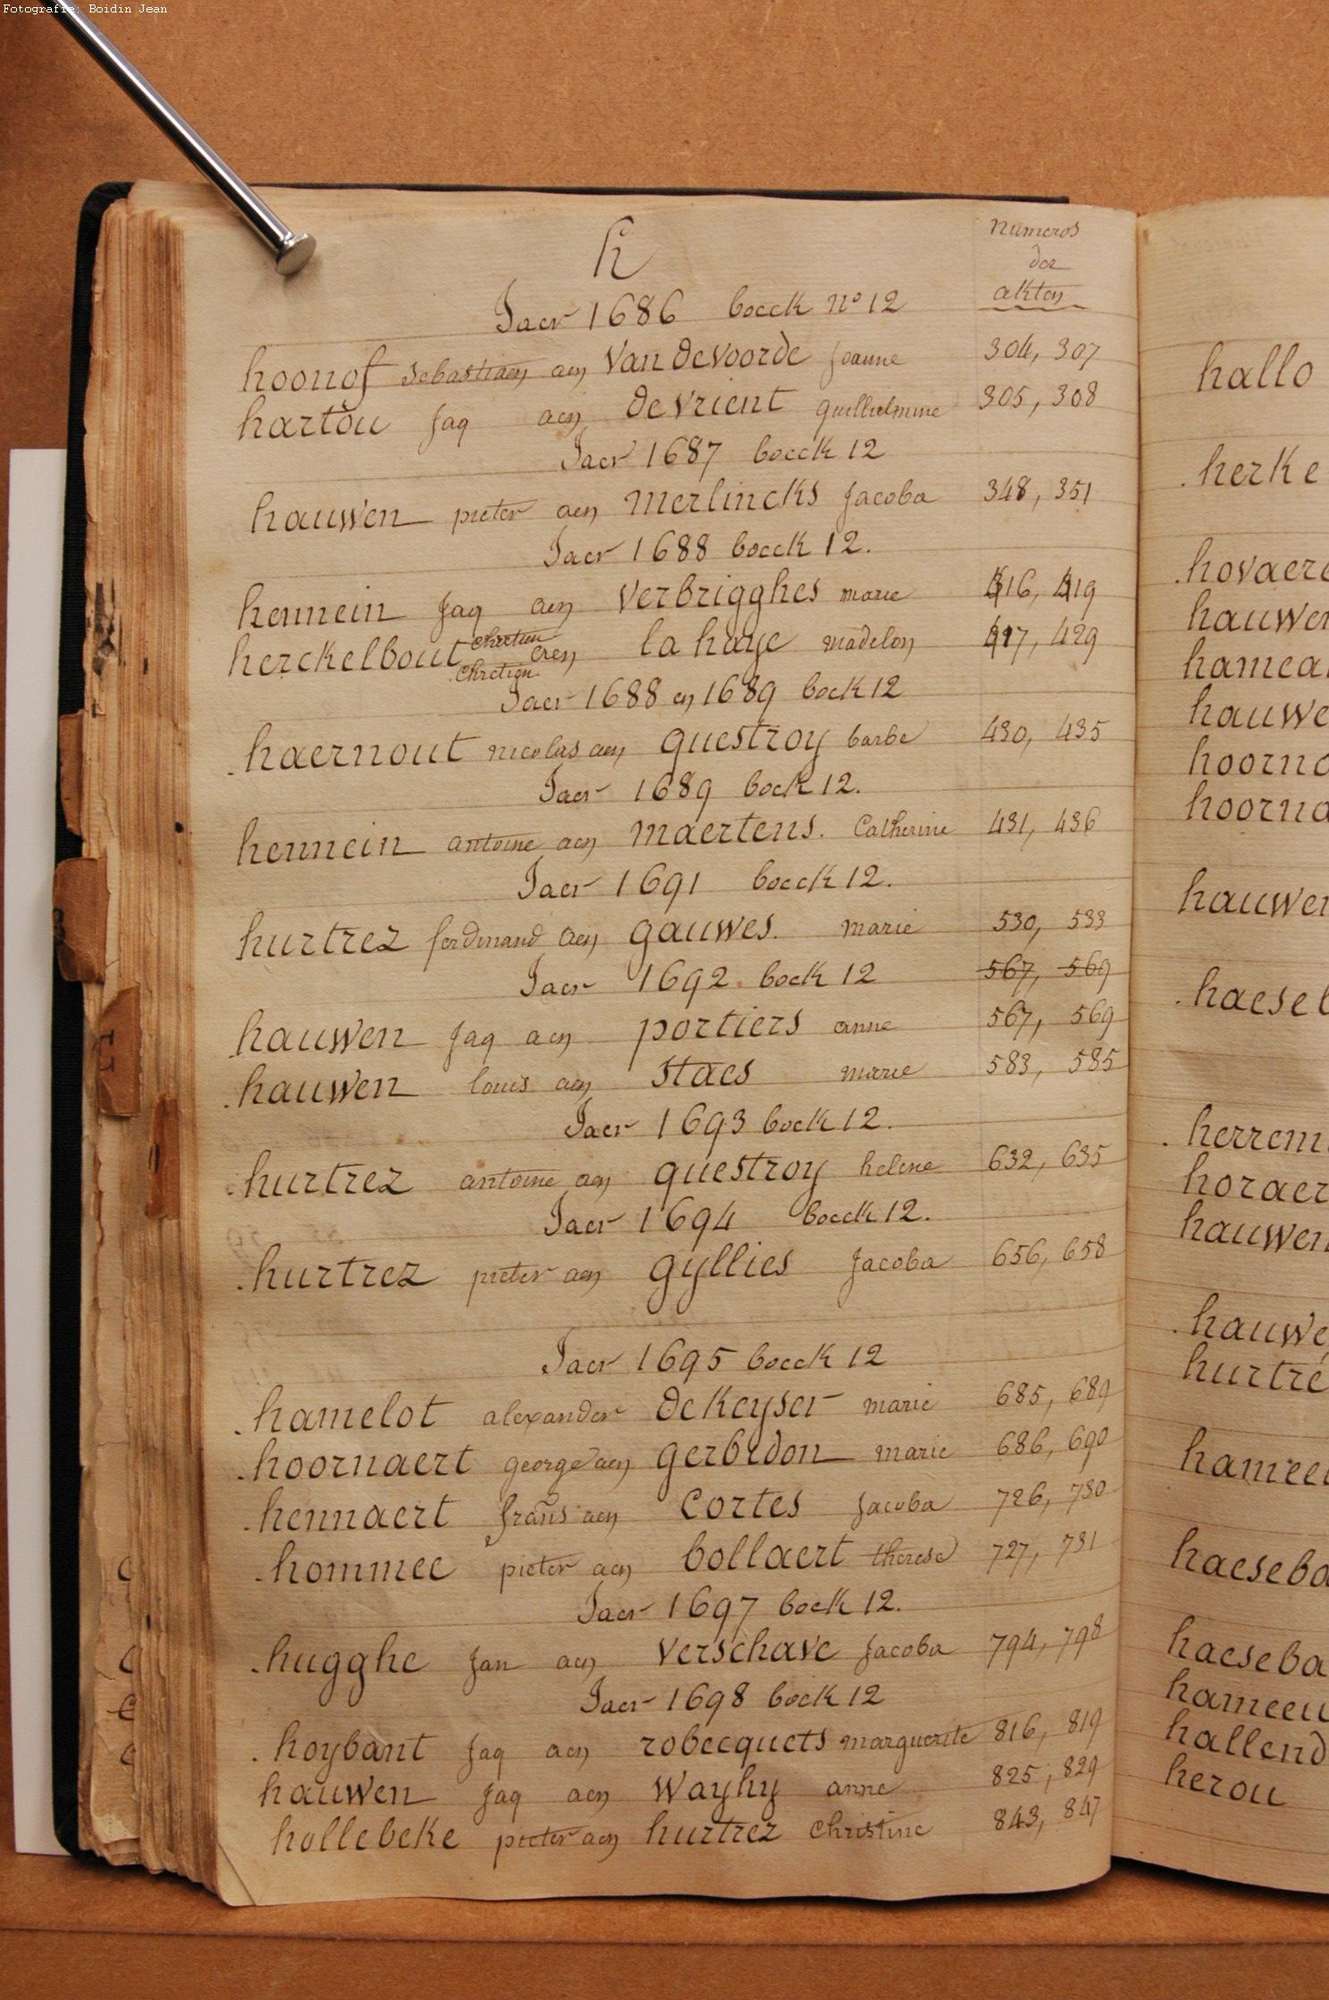 Fotografie: Boidin Jean
h
Numeros
der
akten
Jaer 1686 boeck No 12
hoonof Sebastiaen aen Van de voorde Joanne 304, 307
hartou Jaq aen de Vrient guillielmine 305, 308
Jaer 1687 boeck 12
hauwen pieter aen Merlincks Jacoba 348, 351
Jaer 1688 boeck 12.
hennein Jaq aen Verbrigghes marie 416, 419
herckelbout chretien aen la haye madelon 417, 429
Chretien
Jaer 1688 en 1689 boek 12
haernout nicolas aen questroy barbe 430, 435
Jaer 1689 boek 12.
hennein antoine aen maertens. Catherine 431, 436
Jaer 1691 boeck 12.
hurtrez ferdinand aen gauwes. marie 530, 533
Jaer 1692. boek 12 567, 569
hauwen Jaq aen portiers anne 567, 569
hauwen louis aen staes marie 583, 585
Jaer 1693 boek 12.
hurtrez antoine aen questroy helene 632, 635
Jaer 1694 boeck 12.
hurtrez pieter aen gyllies Jacoba 656, 658
Jaer 1695 boeck 12
hamelot alexander de Keyser marie 685, 689
hoornaert george aen gerbedon marie 686, 690
hennaert frans aen Cortes Jacoba 726, 730
hommee pieter aen bollaert therese 727, 731
Jaer 1697 boek 12.
hugghe Jan aen Verschave Jacoba 794, 798
Jaer 1698 boek 12
hoybant Jaq aen robecquets marguerite 816, 819
hauwen Jaq aen Wayhy anne 825, 829
hollebeke pieter aen hurtrez Christine 843, 847
hallo
herke
hovaer
hauwen
hamea
hauwe
hoorna
hoorna
hauwen
haeseb
herrem
horaer
hauwen
hauwe
hurtre
hamee
haeseba
haeseba
hameeu
hallend
herou